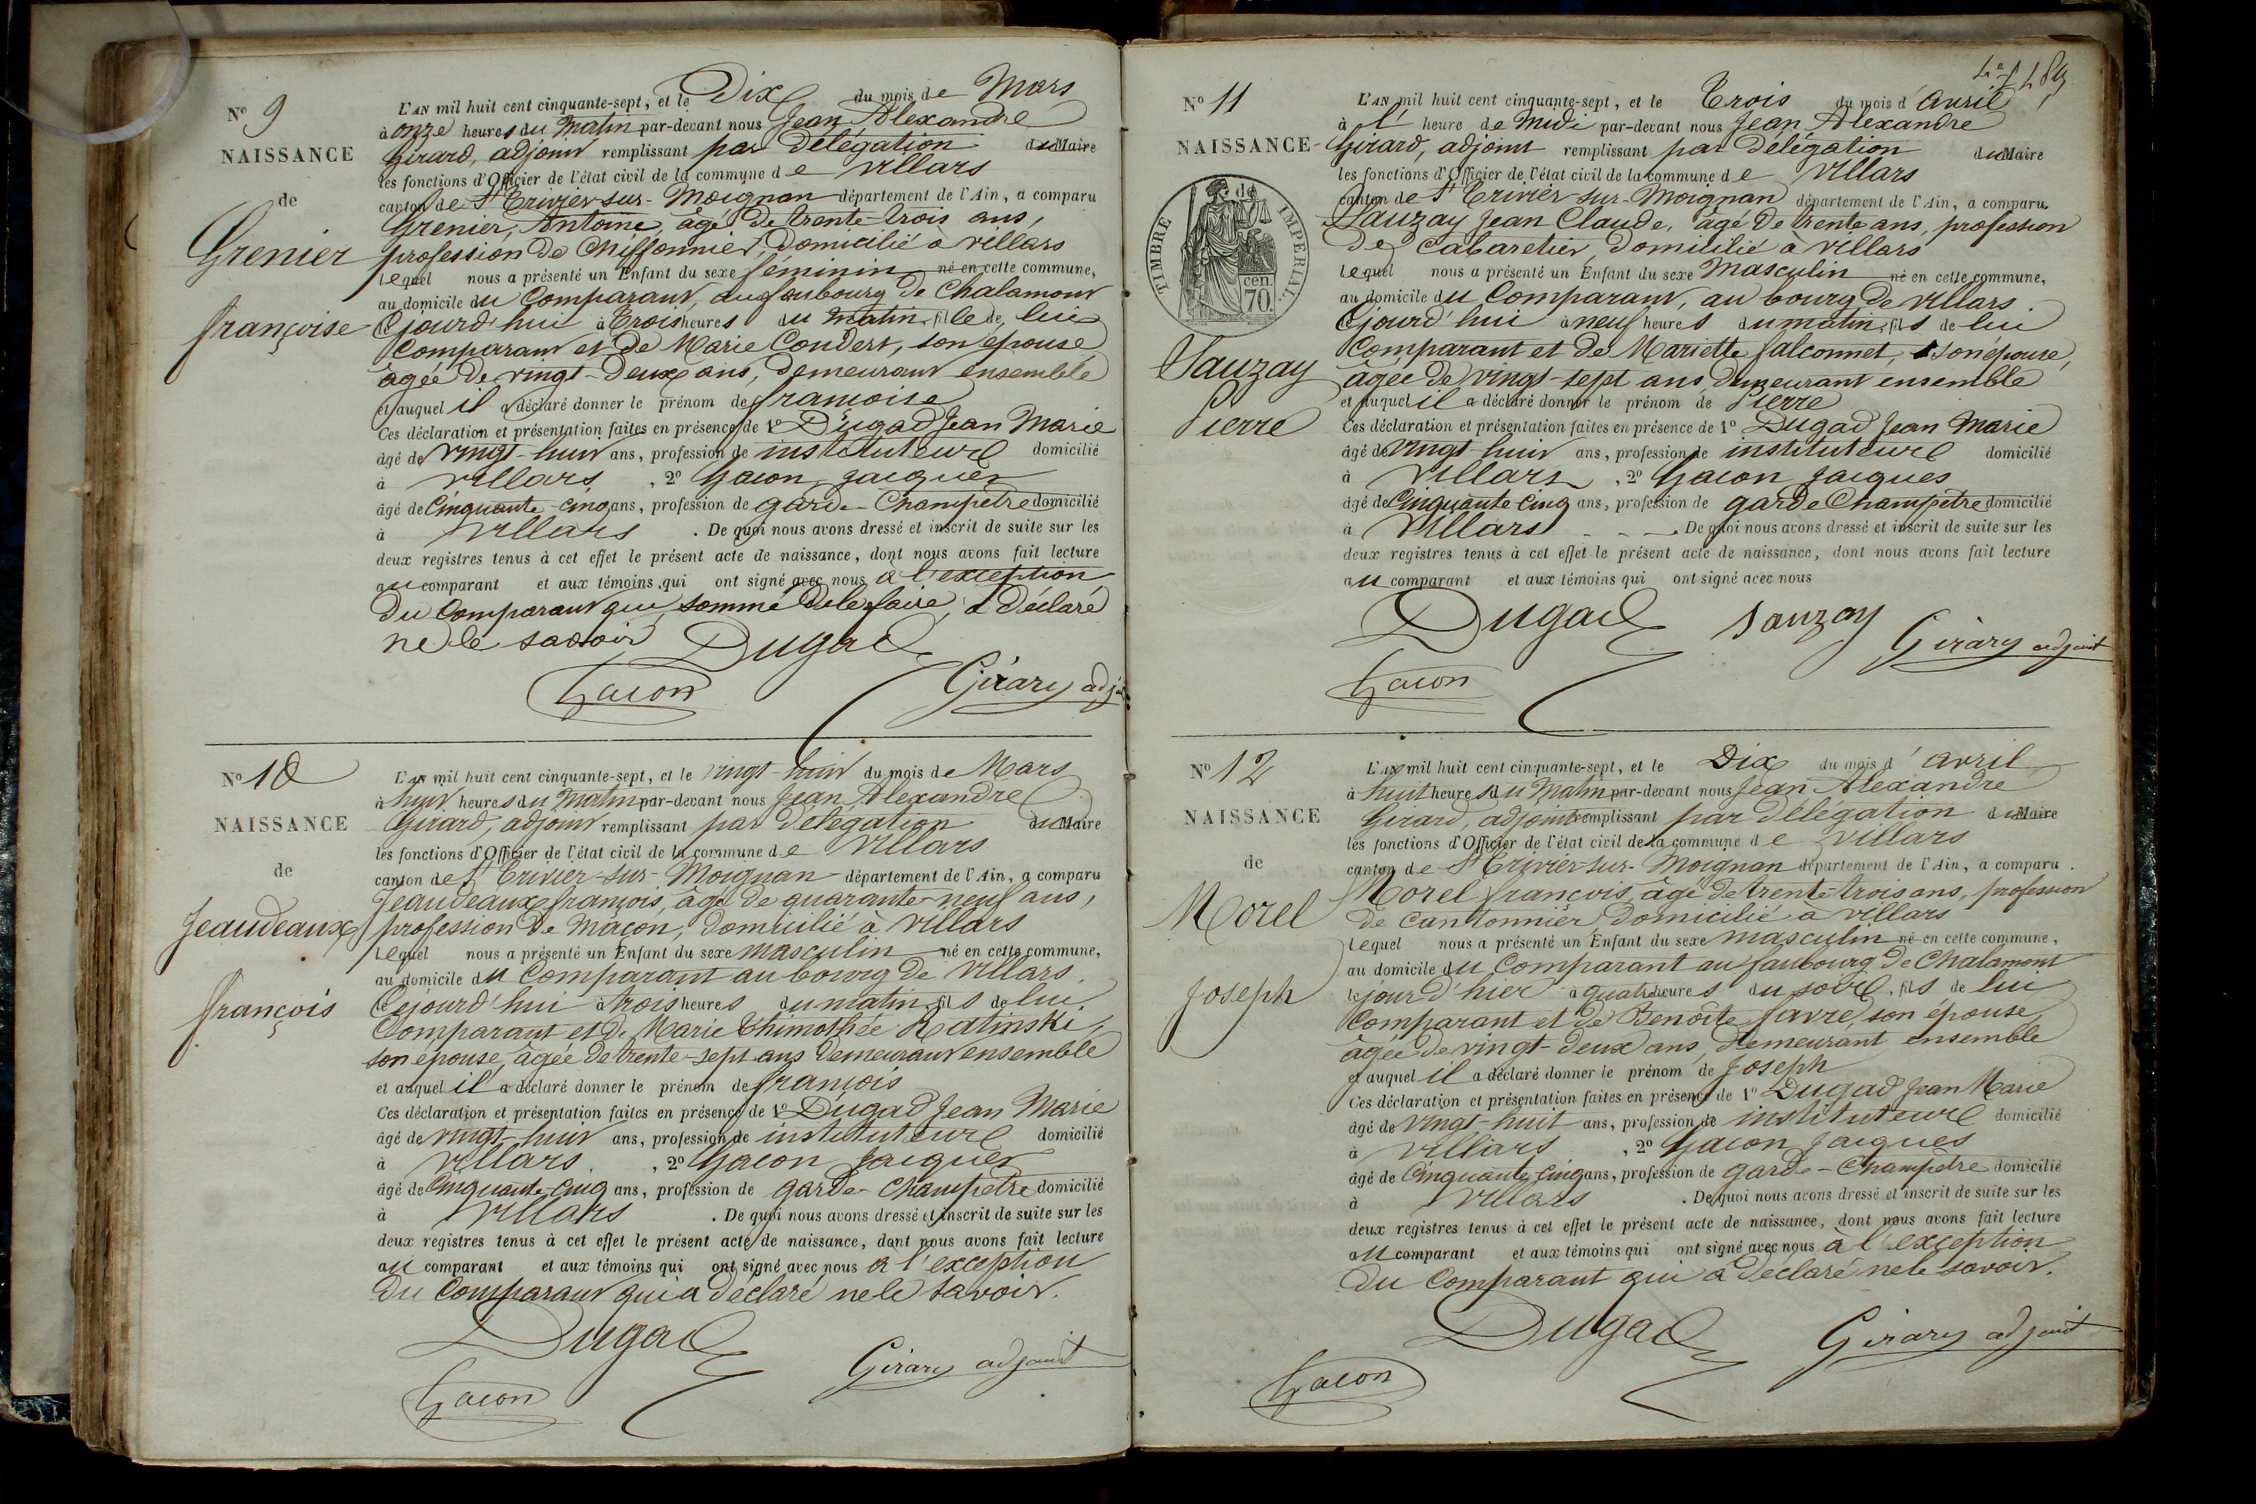 N.º 9
NAISSANCE
de
Grenier
françoise
L'AN mil huit cent cinquante-sept, et le Dix du mois de Mars
à onze heures du matin par-devant nous Jean Alexandre
Girard, adjoint remplissant par Délégation du Maire
les fonctions d'Officier de l'état civil de la commune de Villars
canton de St Trivier-sur-Moignan département de l'Ain, a comparu
Grenier, Antoine, âgé de trente-trois ans,
profession de Chiffonnier, domicilié à villars
lequel nous a présenté un Enfant du sexe féminin né en cette commune,
au domicile du Comparant, au faubourg de Chalamont
Cejourd'hui à Trois heures du matin, fille de lui
Comparant et de Marie Coudert, son épouse,
âgée de vingt-deux ans, demeurant ensemble
et auquel il a déclaré donner le prénom de françoise
Ces déclaration et présentation faites en présence de 1º Dugad Jean Marie
âgé de vingt-huit ans, profession de instituteur domicilié
à villars, 2º Gacon Jacques
âgé de Cinquante-cinq ans, profession de garde-Champêtre domicilié
à Villars. De quoi nous avons dressé et inscrit de suite sur les
deux registres tenus à cet effet le présent acte de naissance, dont nous avons fait lecture
au comparant et aux témoins qui ont signé avec nous à l'exception
du Comparant qui, sommé de le faire, a déclaré
ne le savoir Dugad
Gacon Girard adj
N.º 10
NAISSANCE
de
Jeaudeaux
françois
L'AN mil huit cent cinquante-sept, et le vingt-huit du mois de Mars
à huit heures du Matin par-devant nous Jean Alexandre
Girard, adjoint remplissant par Délégation du Maire
les fonctions d'Officier de l'état civil de la commune de Villars
canton de St Trivier-sur-Moignan département de l'Ain, a comparu
Jeaudeaux françois, âgé de quarante-neuf ans,
profession de Maçon, domicilié à Villars
lequel nous a présenté un Enfant du sexe masculin né en cette commune,
au domicile du Comparant au bourg de Villars,
Cejourd'hui à trois heures du matin, fils de lui
Comparant et de Marie Thimothée Ratinski,
son épouse, âgée de trente-sept ans demeurant ensemble
et auquel il a déclaré donner le prénom de françois
Ces déclaration et présentation faites en présence de 1º Dugad Jean Marie
âgé de vingt-huit ans, profession de instituteur domicilié
à villars, 2º Gacon Jacques
âgé de Cinquante-cinq ans, profession de garde-Champêtre domicilié
à Villars. De quoi nous avons dressé et inscrit de suite sur les
deux registres tenus à cet effet le présent acte de naissance, dont nous avons fait lecture
au comparant et aux témoins qui ont signé avec nous à l'exception
du Comparant qui a déclaré ne le savoir.
Dugad
Gacon Girard adjoint
N.º 11
NAISSANCE
de
TIMBRE IMPERIAL.
70 cen.
Sauzay
Pierre
L'AN mil huit cent cinquante-sept, et le Trois du mois d'avril
à l' heure de midi par-devant nous Jean Alexandre
Girard, adjoint remplissant par Délégation du Maire
les fonctions d'Officier de l'état civil de la commune de Villars
canton de St Trivier-sur-Moignan département de l'Ain, a comparu
Sauzay Jean Claude, âgé de trente ans, profession
de Cabaretier, domicilié à villars
lequel nous a présenté un Enfant du sexe Masculin né en cette commune,
au domicile du Comparant, au bourg de villars
Cejourd'hui à neuf heures du matin, fils de lui
Comparant et de Mariette falconnet, son épouse,
âgée de vingt-sept ans demeurant ensemble
et auquel il a déclaré donner le prénom de Pierre
Ces déclaration et présentation faites en présence de 1º Dugad Jean Marie
âgé de vingt-huit ans, profession de instituteur domicilié
à Villars, 2º Gacon Jacques
âgé de cinquante cinq ans, profession de garde Champêtre domicilié
à Villars. De quoi nous avons dressé et inscrit de suite sur les
deux registres tenus à cet effet le présent acte de naissance, dont nous avons fait lecture
au comparant et aux témoins qui ont signé avec nous
Dugad Sauzay Girard adjoint
Gacon
N.º 12
NAISSANCE
de
Morel
Joseph
L'AN mil huit cent cinquante-sept, et le Dix du mois d'avril
à huit heures du Matin par-devant nous Jean Alexandre
Girard, adjoint remplissant par Délégation du Maire
les fonctions d'Officier de l'état civil de la commune de Villars
canton de St Trivier-sur-Moignan département de l'Ain, a comparu
Morel françois, âgé de trente-trois ans, profession
de cantonnier, domicilié à villars
lequel nous a présenté un Enfant du sexe masculin né en cette commune,
au domicile du Comparant au faubourg de Chalamont
le jour d'hier à quatre heures du soir, fils de lui
Comparant et de Benoîte favre, son épouse,
âgée de vingt-deux ans, demeurant ensemble
et auquel il a déclaré donner le prénom de Joseph
Ces déclaration et présentation faites en présence de 1º Dugad Jean Marie
âgé de vingt-huit ans, profession de instituteur domicilié
à villars, 2º Gacon Jacques
âgé de Cinquante cinq ans, profession de garde-Champêtre domicilié
à Villars. De quoi nous avons dressé et inscrit de suite sur les
deux registres tenus à cet effet le présent acte de naissance, dont nous avons fait lecture
au comparant et aux témoins qui ont signé avec nous à l'exception
du Comparant qui a déclaré ne le savoir.
Dugad Girard adjoint
Gacon